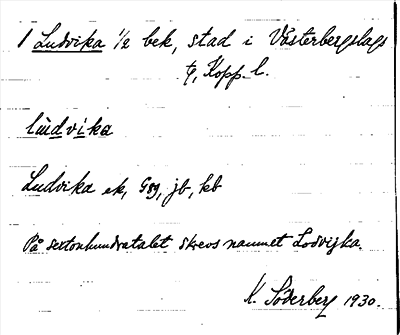 1 Ludvika 1/2 bek, stad i Västerbergslags
tg, Kopp. l.
lùdvika
Ludvika ek, Gsg, jb, kb
På sextonhundratalet skrevs namnet Lodvijka.
K. Söderberg 1930.